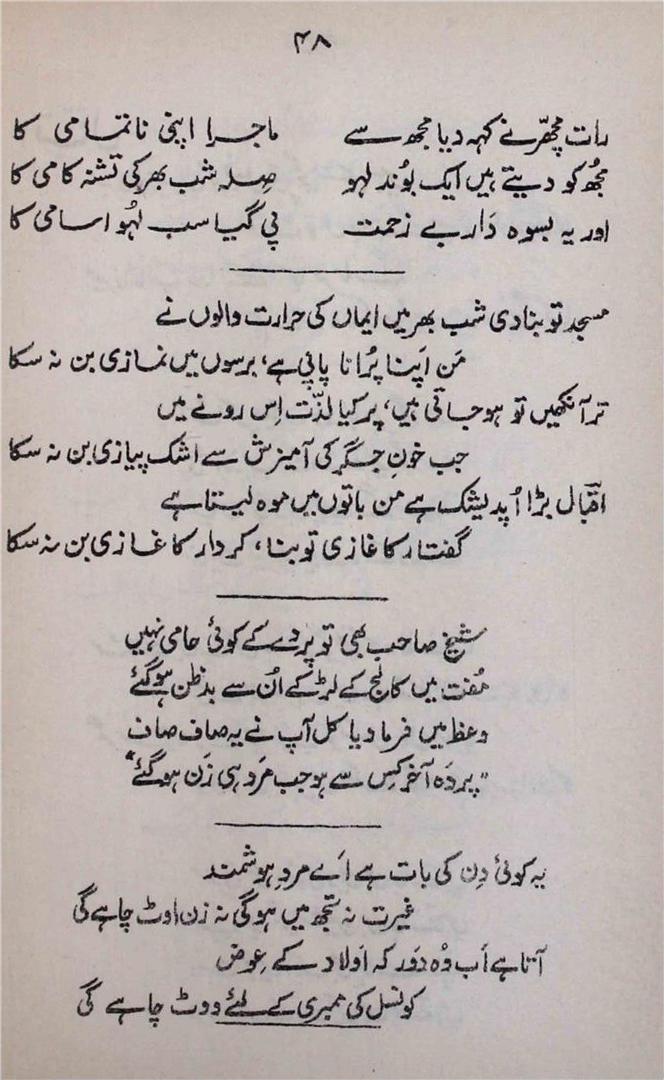 ۴۸
رات مچھّر نے کہہ دیا مجھ سے ماجرا اپنی ناتمامی کا
مجھ کو دیتے ہیں ایک بُوند لہو صِلہ شب بھر کی تشنہ کامی کا
اور یہ بسوہ دَار بے زحمت پی گیا سب لہُو اسامی کا
مسجد تو بنا دی شب بھر میں ایماں کی حرارت والوں نے
مَن اَپنا پُرانا پاپی ہے، برسوں میں نمازی بن نہ سکا
تر آنکھیں تو ہو جاتی ہیں، پر کیا لذّت اِس رونے میں
جب خونِ جگر کی آمیزش سے اشک پیازی بن نہ سکا
اقبال بڑا اُپدیشک ہے من باتوں میں موہ لیتا ہے
گفتار کا غازی تو بنا، کردار کا غازی بن نہ سکا
شیخ صاحب بھی تو پردے کے کوئی حامی نہیں
مُفت میں کالج کے لڑکے اُن سے بدظن ہو گئے
وعظ میں فرما دیا کل آپ نے یہ صاف صاف
"پردَہ آخر کِس سے ہو جب مَرد ہی زَن ہو گئے"
یہ کوئی دِن کی بات ہے اَے مردِ ہوشمند
غیرت نہ تجھ میں ہو گی نہ زن اوٹ چاہے گی
آتا ہے اَب وُہ دَور کہ اَولاد کے عِوض
کونسل کی ممبری کے لئے ووٹ چاہے گی